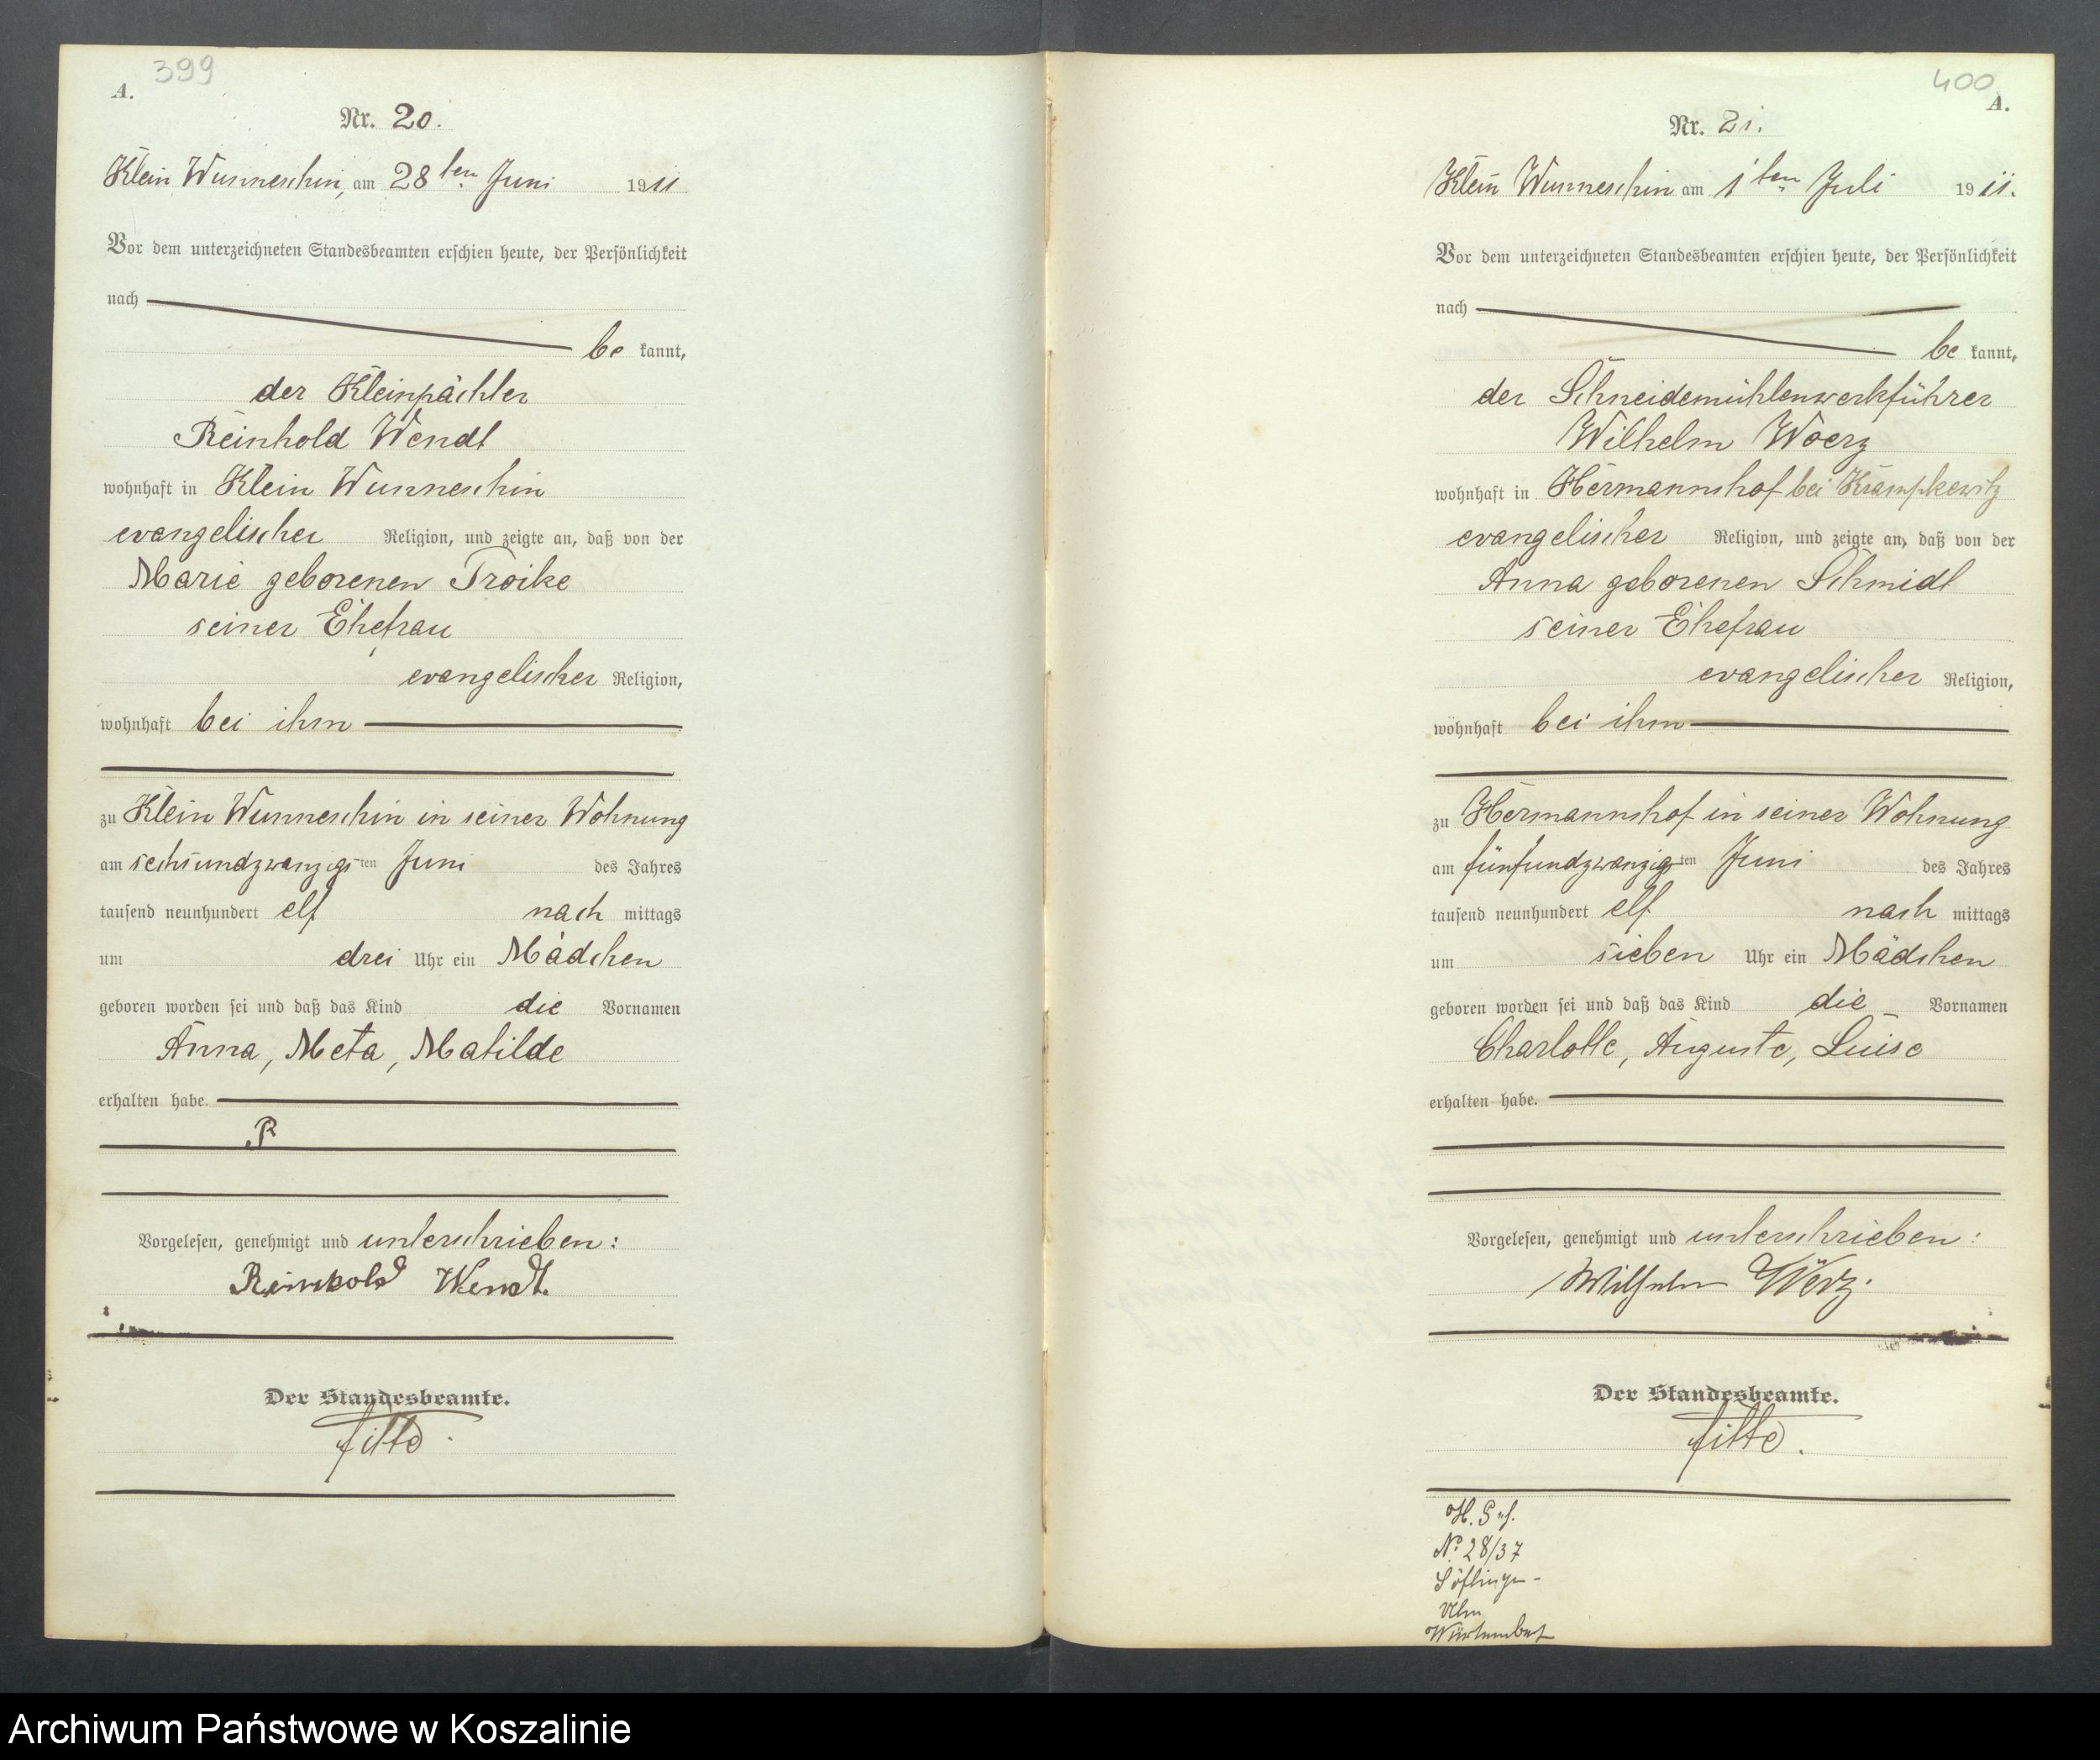 399
A.
Nr. 20.
Klein Wunneschin, am 28ten Juni 1911
Vor dem unterzeichneten Standesbeamten erschien heute, der Persönlichkeit
nach
be kannt,
der Kleinpächter
Reinhold Wendt
wohnhaft in Klein Wunneschin
evangelischer Religion, und zeigte an, daß von der
Marie geborenen Troike
seiner Ehefrau
evangelischer Religion,
wohnhaft bei ihm
zu Klein Wunneschin in seiner Wohnung
am sechsundzwanzigsten Juni des Jahres
tausend neunhundert elf nach mittags
um drei Uhr ein Mädchen
geboren worden sei und daß das Kind die Vornamen
Anna, Meta, Matilde
erhalten habe.
Vorgelesen, genehmigt und unterschrieben:
Reinhold Wendt.
Der Standesbeamte.
400
A.
Nr. 21.
Klein Wunneschin am 1ten Juli 1911.
Vor dem unterzeichneten Standesbeamten erschien heute, der Persönlichkeit
nach
be kannt,
der Schneidemühlenwerkführer
Wilhelm Woerz
wohnhaft in Hermannshof bei Krampkewitz
evangelischer Religion, und zeigte an, daß von der
Anna geborenen Schmidt
seiner Ehefrau
evangelischer Religion,
wohnhaft bei ihm
zu Hermannshof in seiner Wohnung
am fünfundzwanzigsten Juni des Jahres
tausend neunhundert elf nach mittags
um sieben Uhr ein Mädchen
geboren worden sei und daß das Kind die Vornamen
Charlotte, Auguste, Luise
erhalten habe.
Vorgelesen, genehmigt und unterschrieben:
Wilhelm Wörz.
Der Standesbeamte.
No 28/37
Söflingen-
Ulm
Archiwum Państwowe w Koszalinie